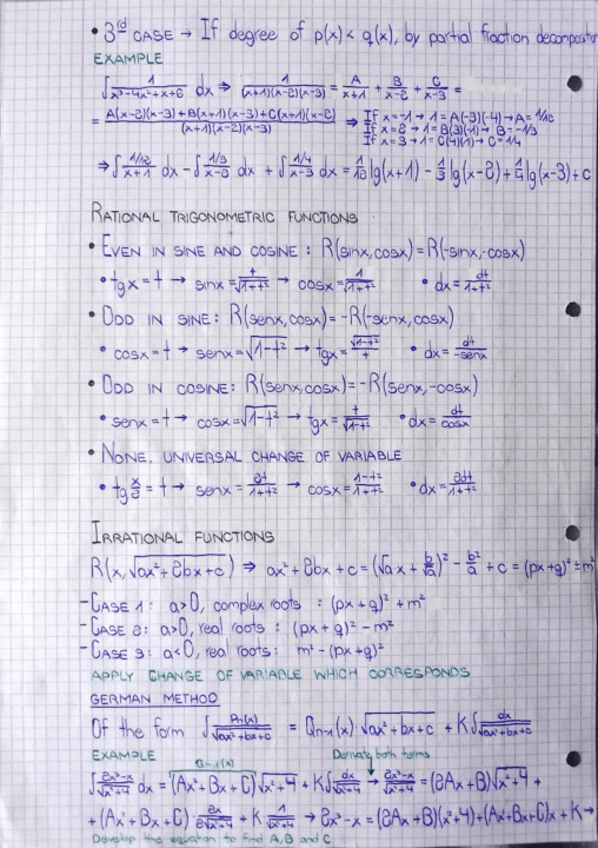 • 3rd CASE → If degree of p(x) < q(x), by partial fraction decomposition
EXAMPLE
∫ 1/(x³-4x²+x+6) dx ⇒ 1/((x+1)(x-2)(x-3)) = A/(x+1) + B/(x-2) + C/(x-3) =
= (A(x-2)(x-3)+B(x+1)(x-3)+C(x+1)(x-2))/((x+1)(x-2)(x-3)) ⇒ If x=-1 → 1=A(-3)(-4) → A=1/12
If x=2 → 1=B(3)(-1) → B=-1/3
If x=3 → 1=C(4)(1) → C=1/4
⇒ ∫ (1/12)/(x+1) dx - ∫ (1/3)/(x-2) dx + ∫ (1/4)/(x-3) dx = 1/12 lg(x+1) - 1/3 lg(x-2) + 1/4 lg(x-3) + c
RATIONAL TRIGONOMETRIC FUNCTIONS
• EVEN IN SINE AND COSINE: R(sinx, cosx) = R(-sinx, -cosx)
• tgx = t → sinx = t/√(1+t²) → cosx = 1/√(1+t²) • dx = dt/(1+t²)
• ODD IN SINE: R(senx, cosx) = -R(-senx, cosx)
• cosx = t → senx = √(1-t²) → tgx = √(1-t²)/t • dx = dt/(-senx)
• ODD IN COSINE: R(senx, cosx) = -R(senx, -cosx)
• senx = t → cosx = √(1-t²) → tgx = t/√(1-t²) • dx = dt/cosx
• NONE. UNIVERSAL CHANGE OF VARIABLE
• tg x/2 = t → senx = 2t/(1+t²) → cosx = (1-t²)/(1+t²) • dx = 2dt/(1+t²)
IRRATIONAL FUNCTIONS
R(x, √(ax²+2bx+c)) ⇒ ax²+2bx+c = (√a x + b/√a)² - b²/a + c = (px+q)² ± m²
- CASE 1: a>0, complex roots : (px+q)² + m²
- CASE 2: a>0, real roots : (px+q)² - m²
- CASE 3: a<0, real roots: m² - (px+q)²
APPLY CHANGE OF VARIABLE WHICH CORRESPONDS
GERMAN METHOD
Of the form ∫ Pn(x)/√(ax²+bx+c) = Qn-1(x) √(ax²+bx+c) + K ∫ dx/√(ax²+bx+c)
EXAMPLE Qn-1(x) Derivate both terms
∫ (2x³-x)/√(x²+4) dx = (Ax²+Bx+C)√(x²+4) + K ∫ dx/√(x²+4) → (2x³-x)/√(x²+4) = (2Ax+B)√(x²+4) +
+ (Ax²+Bx+C) · 2x/(2√(x²+4)) + K · 1/√(x²+4) → 2x³-x = (2Ax+B)(x²+4)+(Ax²+Bx+C)x + K →
Develop the equation to find A, B and C